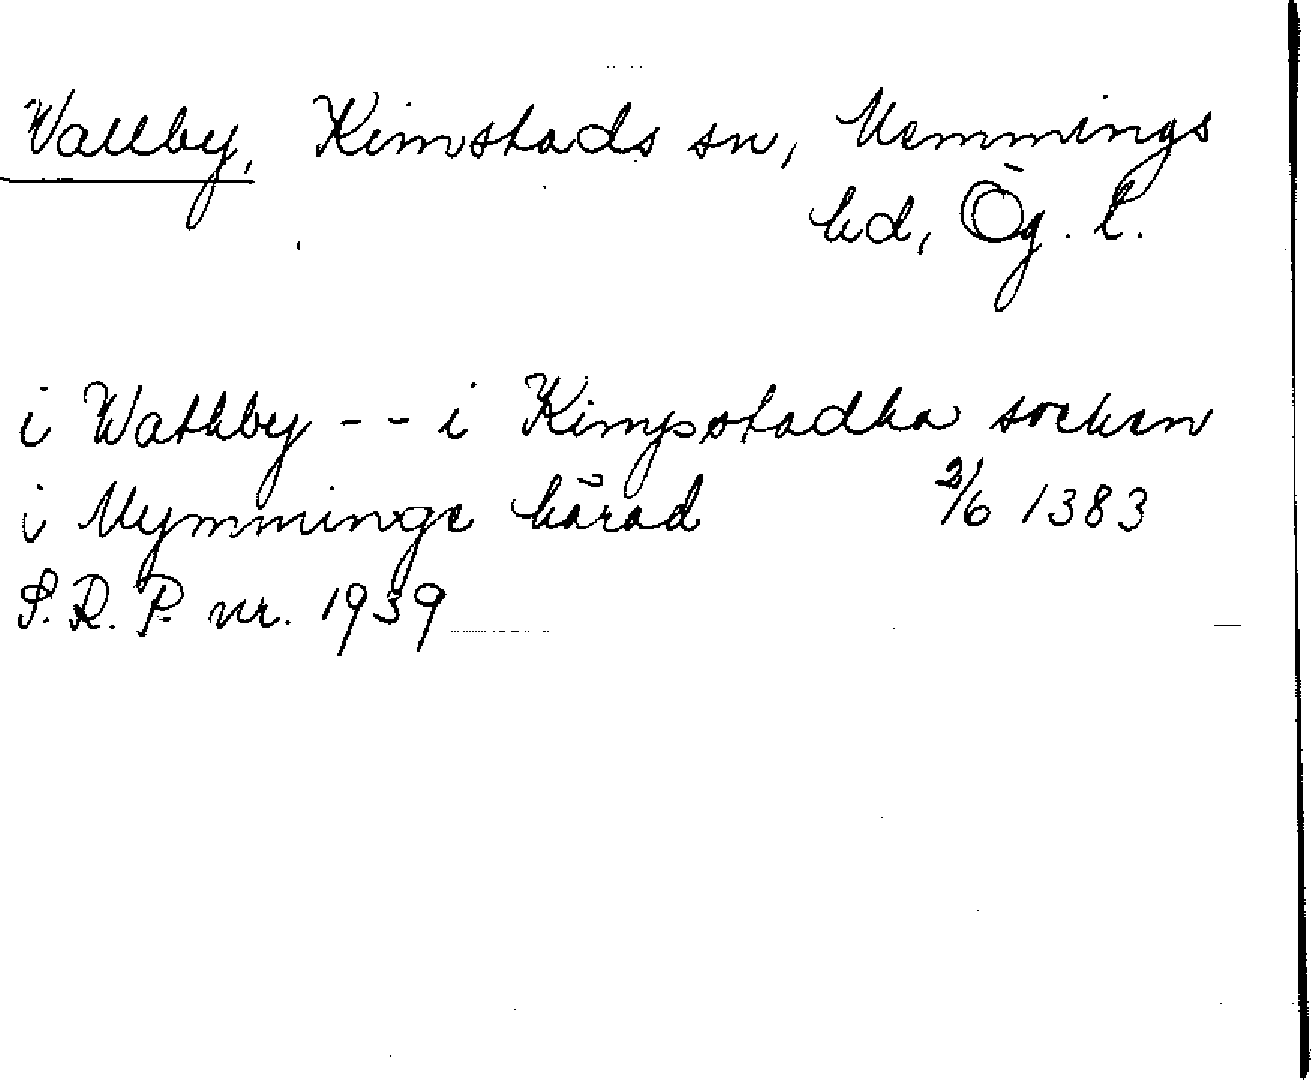 Vallby, Kimstads sn, Memmings
hd, Ög. l.
i Wathby - - i Kimpstadha sokn
i Mymminge härad 2/6 1383
S.R.P. nr. 1939